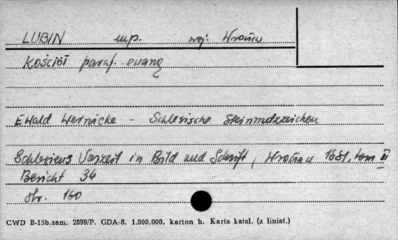 LUBIN m.p. woj. Wrocław
Kościół paraf. ewang
Ewald Wernicke - Schlesische Steinmetzzeichen
Schlesiens Vorzeit in Bild und Schrift, Wrocław 1881, tom III
Bericht 34
Str. 160
CWD B-15b.zam. 2899/P. GDA-8. 1.000.000. karton b. Karta katal. (z liniat.)